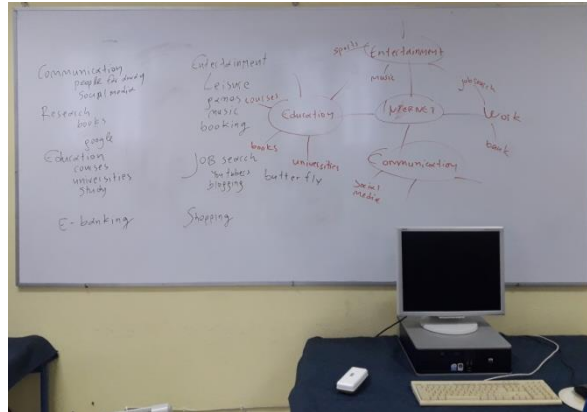 Communication
people far away
social media
Research
books
google
Education
courses
universities
study
E-banking
Entertainment
Leisure
games
music
booking
JOB search
You tubers
blogging
Shopping
sports
Entertainment
music
courses
Education
books
universities
butterfly
INTERNET
job search
Work
bank
Communication
social
media